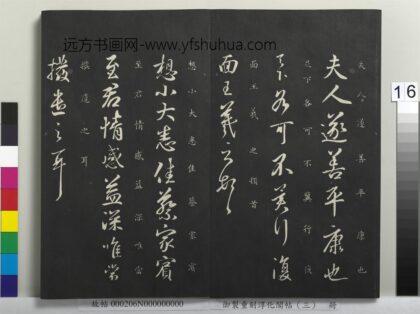 远方书画网-www.yfshuhua.com
夫人遂善平康也
夫人遂善平康也
足下各可不冀行復
足下各可不冀行復
面王羲之頓首
面王羲之頓首
想小大悉佳蔡家賓
想小大悉佳蔡家賓
至君情感益深唯當
至君情感益深唯當
撥遣之耳
撥遣之耳
16
故帖 000206N000000000
御製重刻淳化閣帖(三) 冊